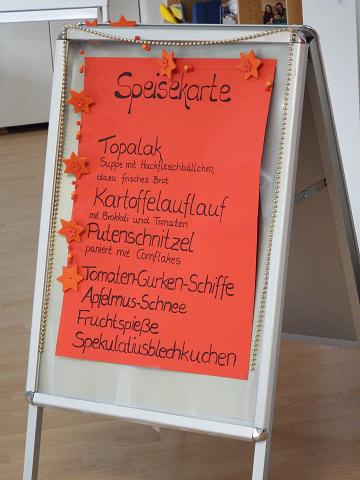 Speisekarte
Topalak
Suppe mit Hackfleischbällchen,
dazu frisches Brot
Kartoffelauflauf
mit Brokkoli und Tomaten
Putenschnitzel
paniert mit Cornflakes
Tomaten-Gurken-Schiffe
Apfelmus-Schnee
Fruchtspieße
Spekulatiusblechkuchen